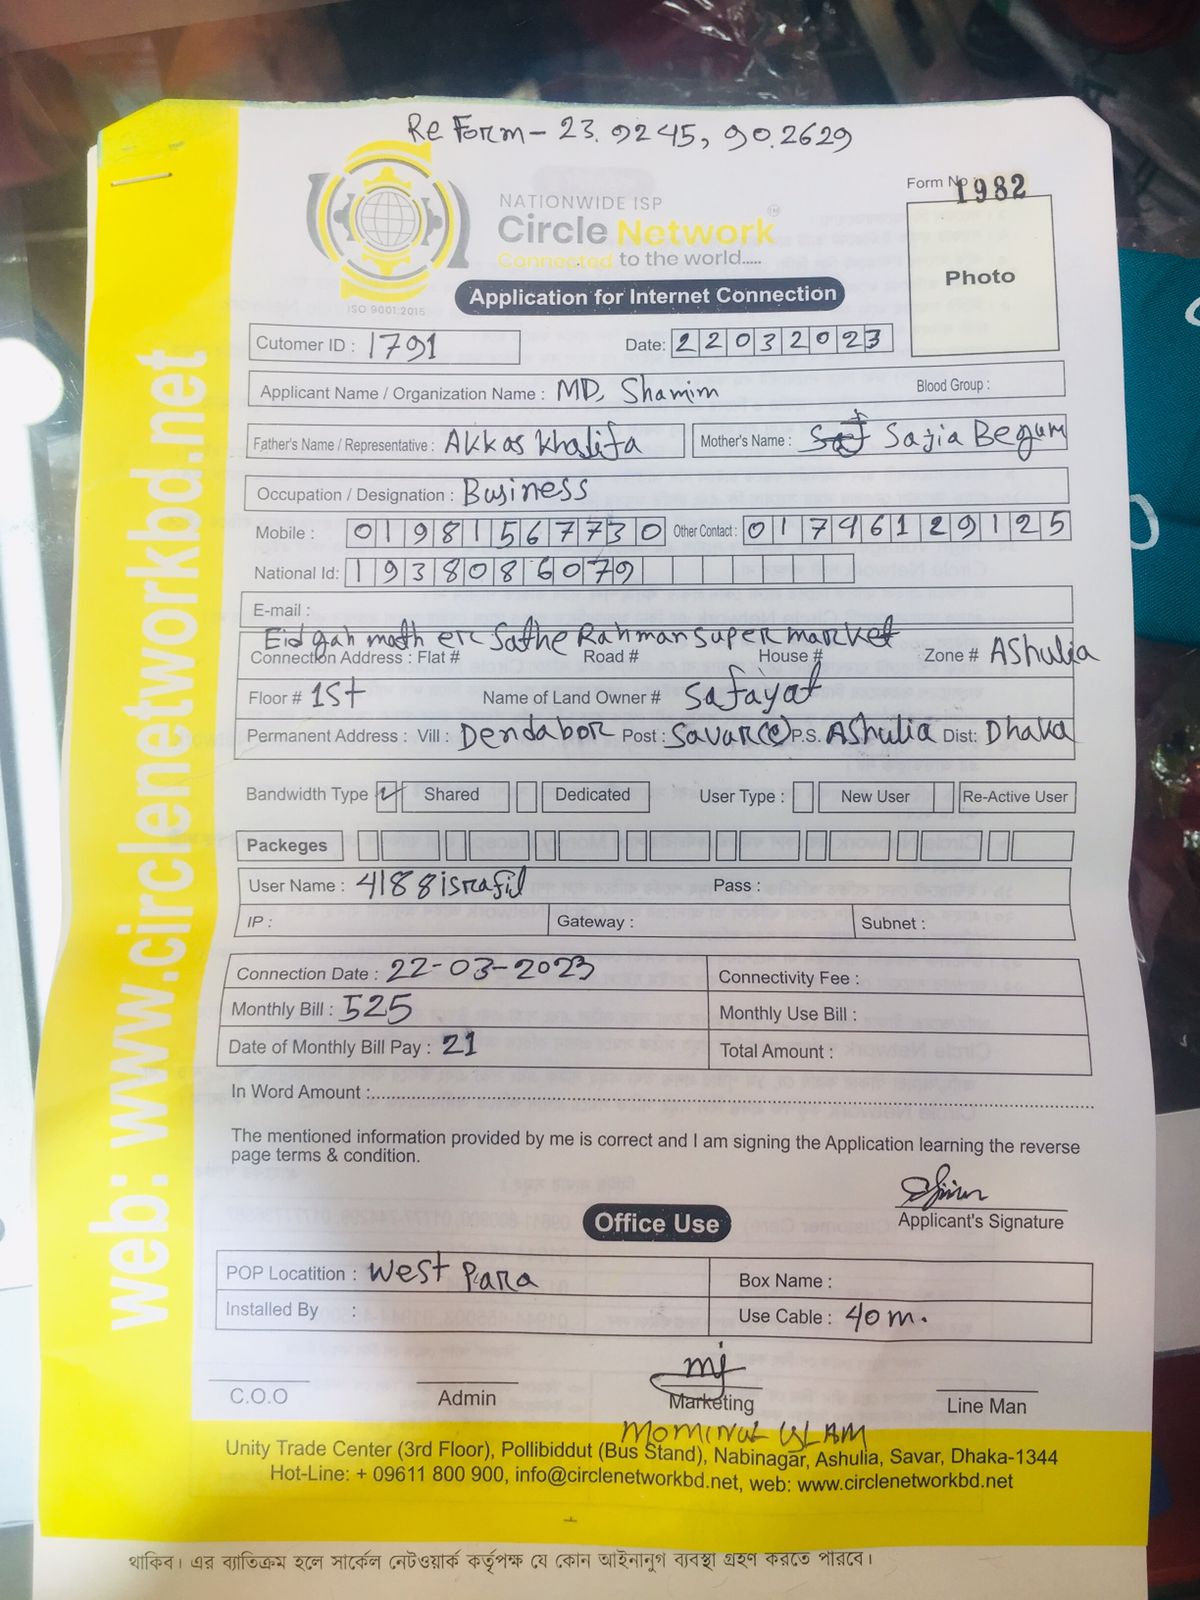 Re Form - 23.9245, 90.2629
Form No : 1982
NATIONWIDE ISP
Circle Network
Connected to the world.....
ISO 9001:2015
Photo
Application for Internet Connection
Cutomer ID : 1791 Date: 22032023
Applicant Name / Organization Name : MD, Shamim Blood Group :
Father's Name / Representative : Akkas Khalifa Mother's Name : Sajia Begum
Occupation / Designation : Business
Mobile : 01981567730 Other Contact : 01746129125
National Id: 1938086079
E-mail :
Eidgah math er Sathe Rahman super market
Connection Address : Flat # Road # House # Zone # AShulia
Floor # 1St Name of Land Owner # Safayat
Permanent Address : Vill : Dendabor Post : Savar(c) P.S. AShulia Dist: Dhaka
Bandwidth Type Shared Dedicated User Type : New User Re-Active User
Packeges
User Name : 4188israfil Pass :
IP : Gateway : Subnet :
Connection Date : 22-03-2023 Connectivity Fee :
Monthly Bill : 525 Monthly Use Bill :
Date of Monthly Bill Pay : 21 Total Amount :
In Word Amount :
The mentioned information provided by me is correct and I am signing the Application learning the reverse
page terms & condition.
Applicant's Signature
Office Use
POP Locatition : West Para Box Name :
Installed By : Use Cable : 40m.
mj
C.O.O Admin Marketing Line Man
MOMINUL ISLAM
Unity Trade Center (3rd Floor), Pollibiddut (Bus Stand), Nabinagar, Ashulia, Savar, Dhaka-1344
Hot-Line: + 09611 800 900, info@circlenetworkbd.net, web: www.circlenetworkbd.net
থাকিব। এর ব্যাতিক্রম হলে সার্কেল নেটওয়ার্ক কর্তৃপক্ষ যে কোন আইনানুগ ব্যবস্থা গ্রহণ করতে পারবে।
web: www.circlenetworkbd.net